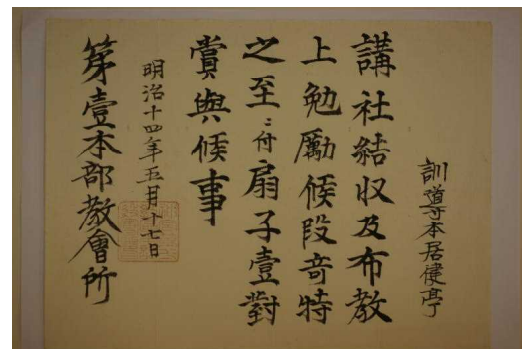 訓導本居健亭
講社結収及布教
上勉勵候段奇特
之至ニ付扇子壹對
賞與候事
明治十四年五月十七日
第壹本部教會所